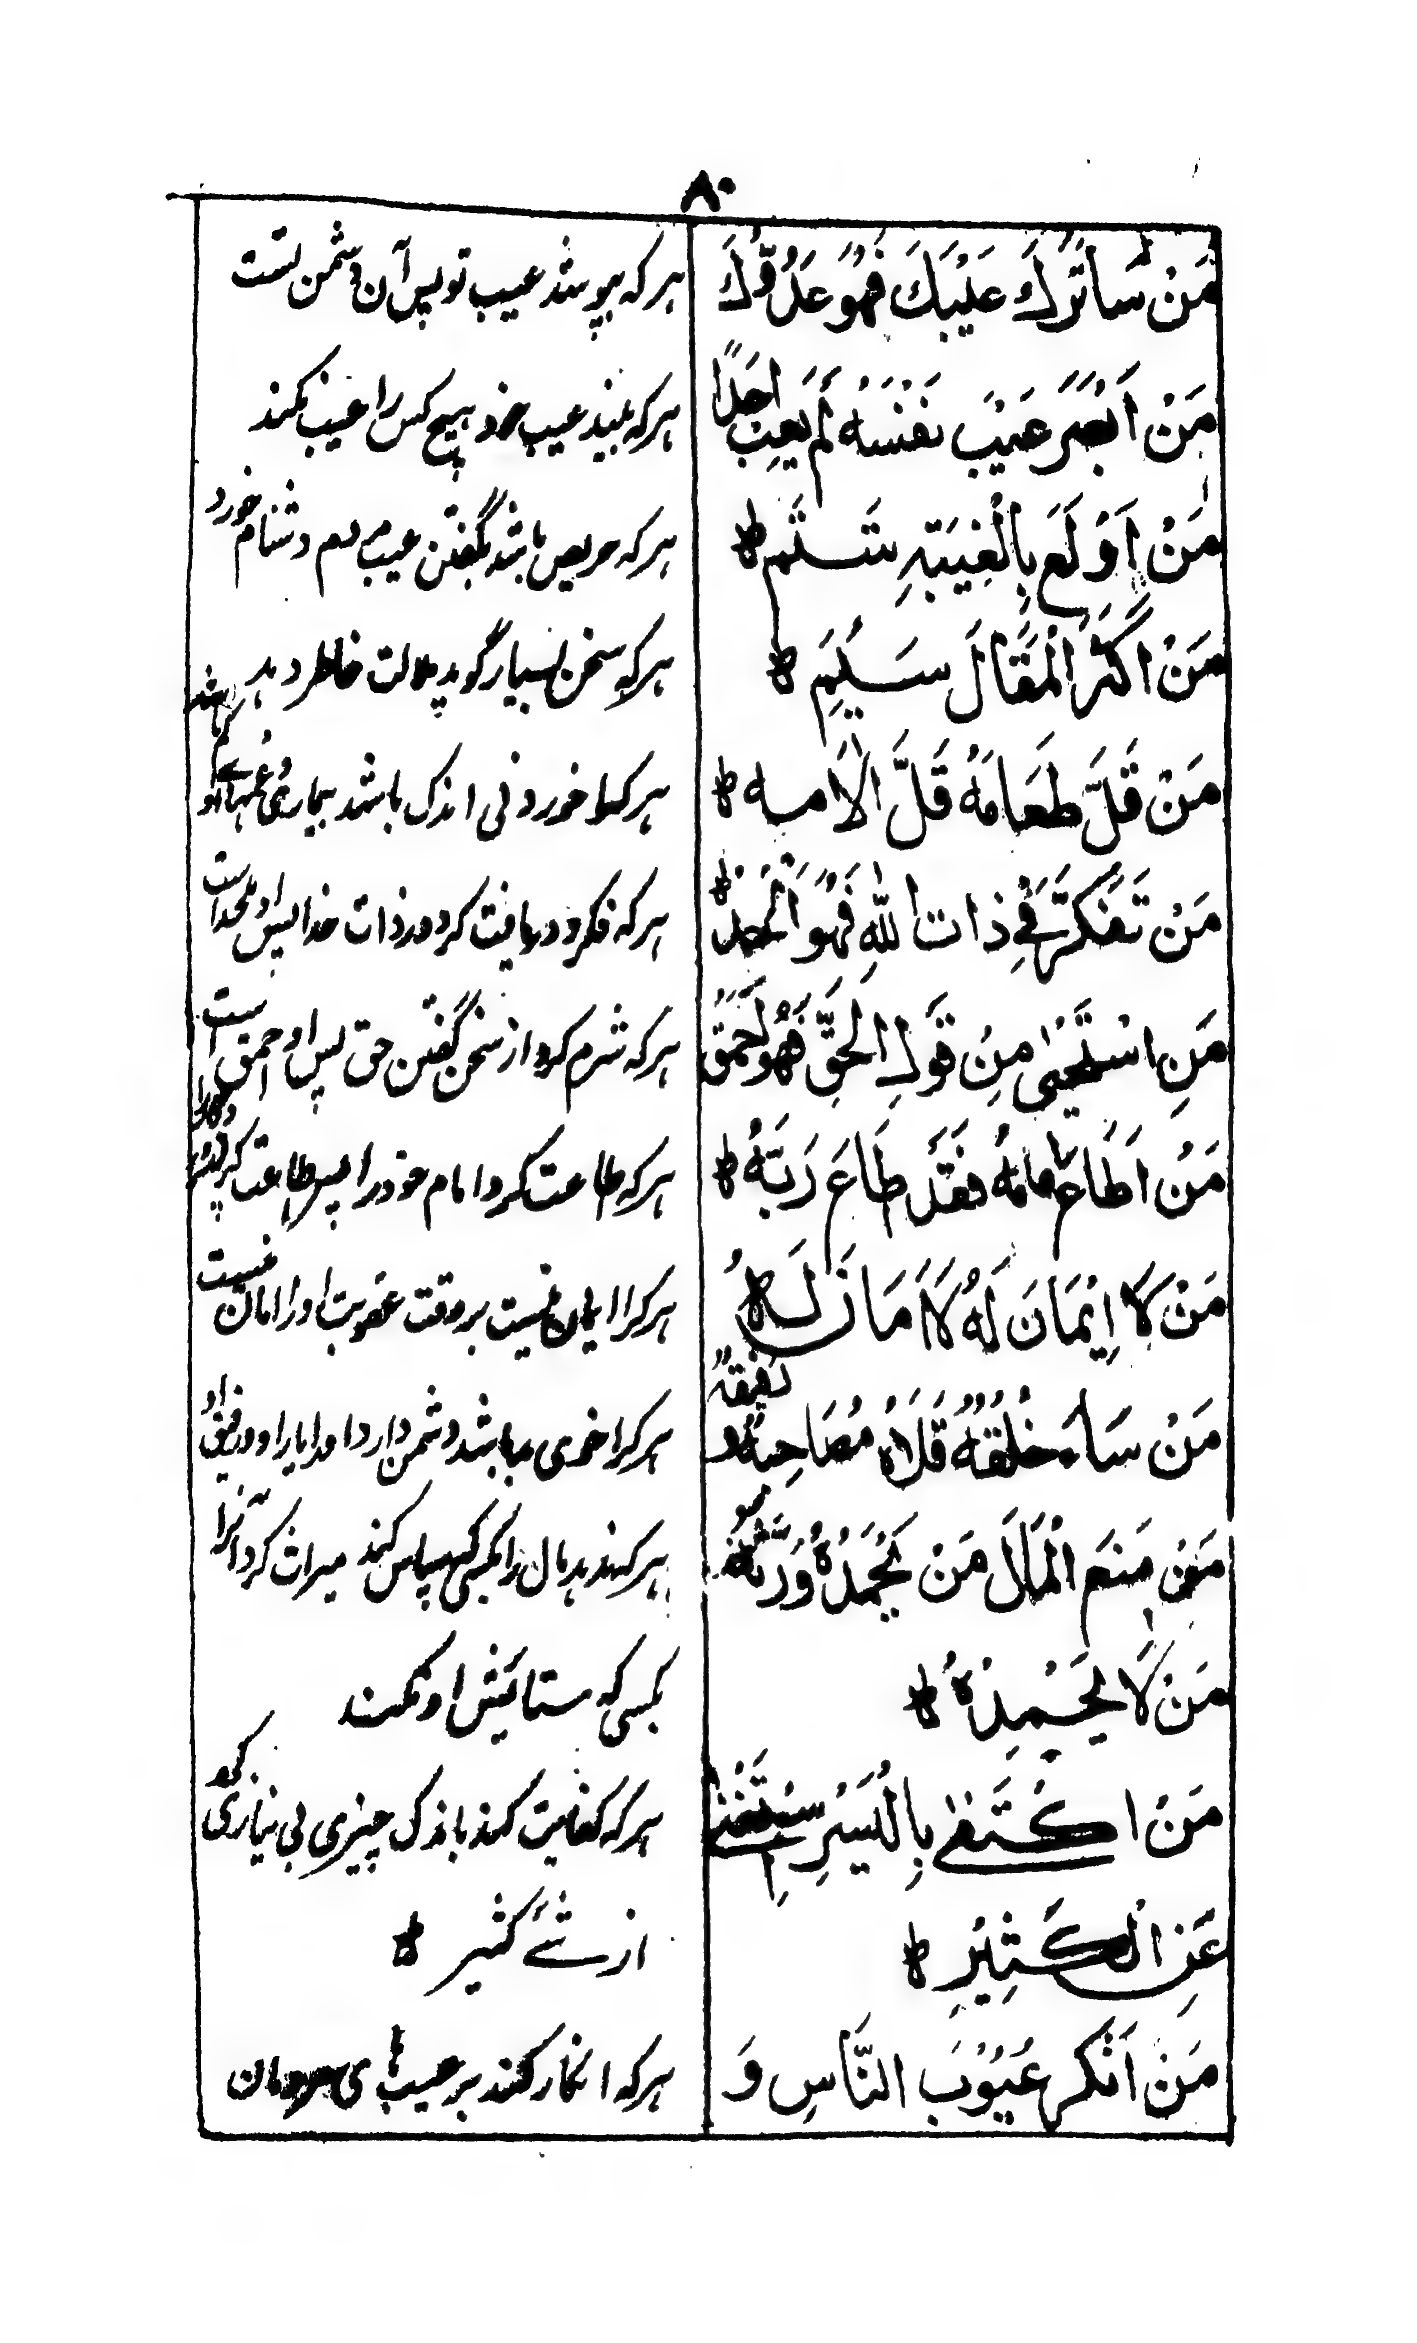 ٨٠
مَنْ سَاتَرَكَ عَيْبَكَ فَهُوَ عَدُوُّكَ
هر که بپوشد عیب تو پس آن دشمن تست
مَنْ اَبْصَرَ عَيْبَ نَفْسَهُ لَمْ يَعِبْ اَحَدًا
هر که بیند عیب خود هیچ کس را عیب نکند
مَنْ اَوْلَعَ بِالْغِيبَةِ شُتِمَ ط
هر که حریص باشد بگفتن عیب مردم دشنام خورد
مَنْ اَكْثَرَ الْمَقَالَ سَئِمَ ط
هر که سخن بسیار گوید ملالت خاطر دهد
مَنْ قَلَّ طَعَامَهُ قَلَّ الَامه ط
هر کرا خوردنی اندک باشد بیماری غمهای او
مَنْ تَفَكَّرَ فِي ذات اللهِ فَهُوَ اَلْحَدُ ط
هر که فکر و دریافت کرد در ذات خدا پس او ملحد است
مَنِ اسْتَحْيٰى مِنْ قَولِ الحَقِّ فَهُوَ اَحْمَقُ
هر که شرم کرد از سخن گفتن حق پس او احمق است
مَنْ اَطَاعَ اِمَامَهُ فَقَدْ طَاعَ رَبَّهُ ط
هر که طاعت کرد امام خود را پس طاعت کرد
مَنْ لَا اِيْمَانَ لَهُ لَا اَمَانَ لَهُ ط
هر کرا ایمان نیست بر وقت عقوبت او را امان نیست
مَنْ سَاءَ خُلُقُهُ قَلَاهُ مُصَاحِبُهُ وَ رَفِيقُهُ
هر کرا خوی بد باشد دشمن دارد او را یار او و رفیق او
مَنْ مَنَعَ الْمَالَ مَنْ يَحْمَدُهُ وَرَّثَهُ
هر که ندهد مال را بکسی که سپاس کند میراث کرد آنرا
مَنْ لَا يَحْمِدُهُ ط
بکسی که ستایش او نکند
مَنْ اكْتَفٰى بِالْيَسِيرِ اسْتَغْنٰى
هر که کفایت کند باندک چیزی بی نیازی کرد
عَنِ الْكَثِيْرِ ط
از شئے کثیر ط
مَنْ اَنْكَرَ عُيُوْبَ النَّاسِ وَ
هر که انکار کند بر عیب های مردمان